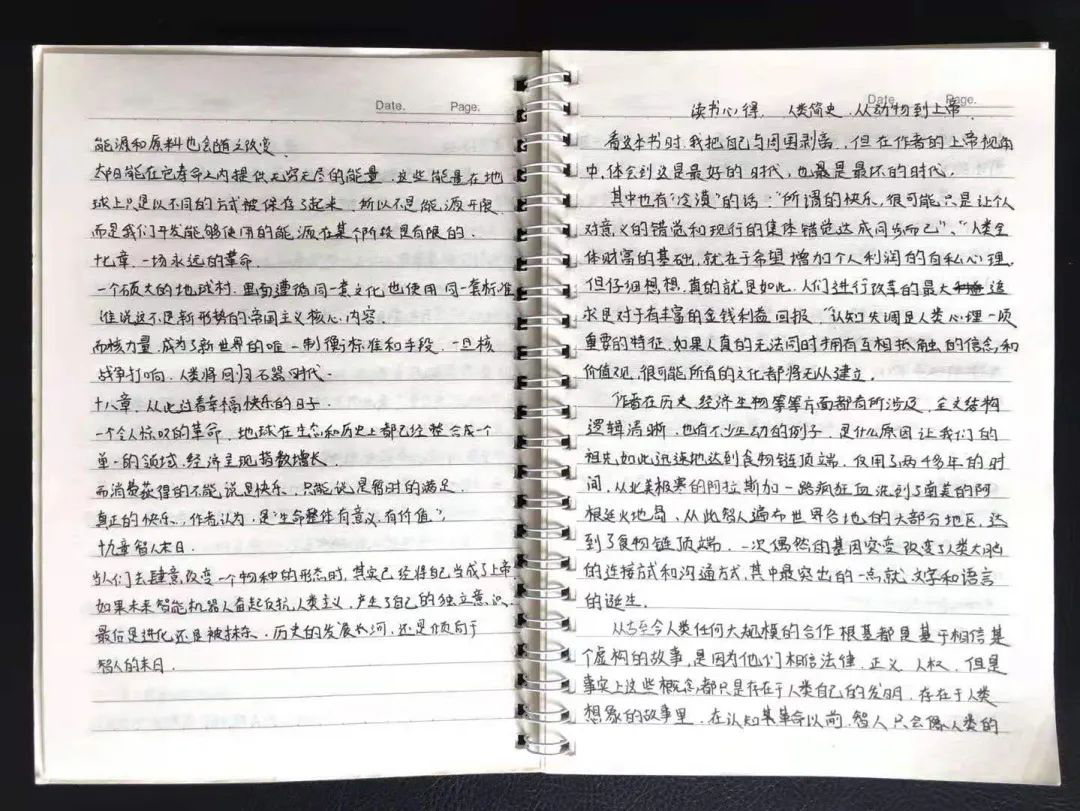 Date. Page.
能源和原料也会随之改变.
太阳能在它寿命之内提供无穷无尽的能量, 这些能量在地
球上只是以不同的方式被保存了起来, 所以不是能源有限,
而是我们开发能够使用的能源在某个阶段是有限的.
十七章. 一场永远的革命.
一个硕大的地球村, 里面遵循同一套文化也使用同一套标准
谁说这不是新形势的帝国主义核心内容.
而核力量, 成为了新世界的唯一制衡标准和手段, 一旦核
战争打响, 人类将回归石器时代.
十八章, 从此过着幸福快乐的日子.
一个令人惊叹的革命, 地球在生态和历史上都已经整合成一个
单一的领域, 经济呈现指数增长.
而消费获得的不能说是快乐, 只能说是暂时的满足.
真正的快乐, 作者认为, 是"生命整体有意义, 有价值".
十九章 智人末日.
当人们去肆意改变一个物种的形态时, 其实已经将自己当成了上帝
如果未来智能机器人奋起反抗人类主义, 产生了自己的独立意识,
最后是进化还是被抹杀, 历史的发展长河, 还是倾向于
智人的末日.
Date. Page.
读书心得. 人类简史. 从动物到上帝.
看这本书时, 我把自己与周围剥离, 但在作者的上帝视角
中, 体会到这是最好的时代, 也是最坏的时代.
其中也有"冷漠"的话: "所谓的快乐, 很可能只是让个人
对意义的错觉和现行的集体错觉达成同步而已"、"人类全
体财富的基础, 就在于希望增加个人利润的自私心理,
但仔细想想, 真的就是如此, 人们进行改革的最大追
求是对于有丰富的金钱利益回报, 认知失调是人类心理一项
重要的特征, 如果人真的无法同时拥有互相抵触的信念和
价值观, 很可能所有的文化都将无从建立.
作者在历史、经济生物等等方面都有所涉及, 全文结构
逻辑清晰, 也有不少生动的例子, 是什么原因让我们的
祖先如此迅速地达到食物链顶端, 仅用了两千多年的时
间, 从北美极寒的阿拉斯加一路疯狂血洗到了南美的阿
根廷火地岛, 从此智人遍布世界各地的大部分地区, 达
到了食物链顶端, 一次偶然的基因突变改变了人类大脑
的连接方式和沟通方式, 其中最突出的一点就文字和语言
的诞生.
从古至今人类任何大规模的合作根基都是基于相信某
个虚构的故事, 是因为他们相信法律、正义、人权, 但是
事实上这些概念都只是存在于人类自己的发明, 存在于人类
想象的故事里, 在认知某革命以前, 智人只会像人类的